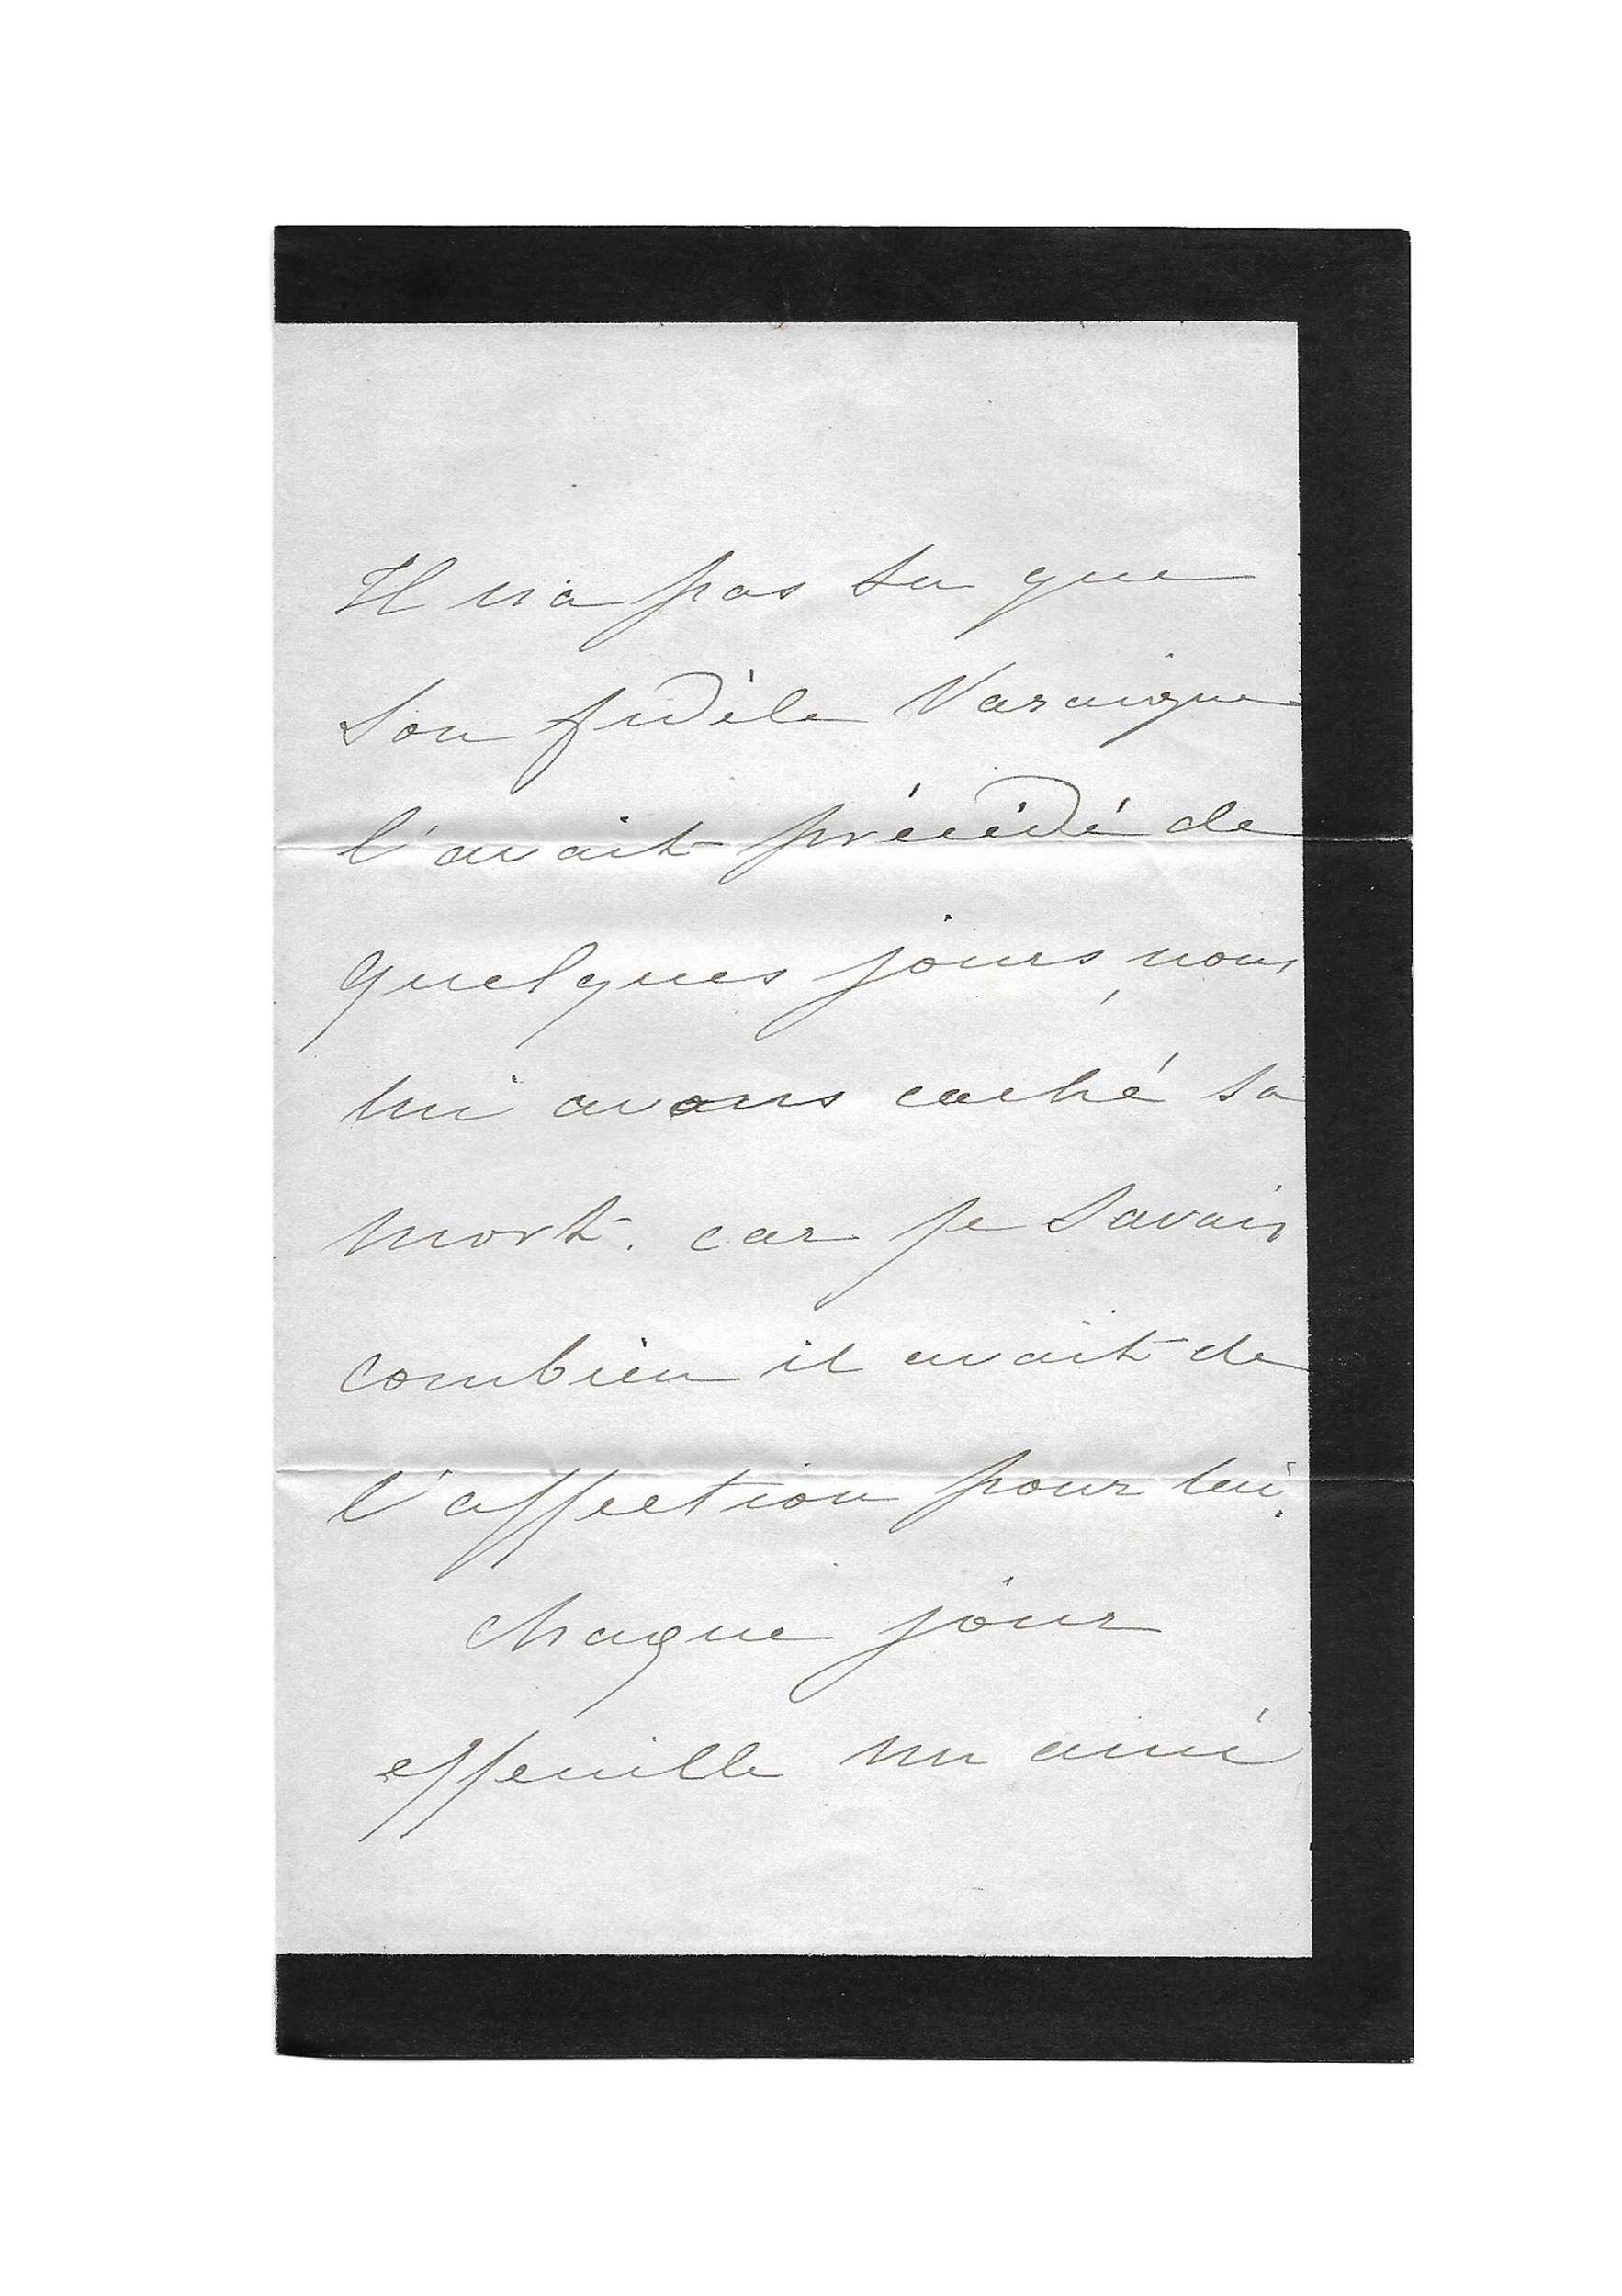 Il n'a pas su que
son fidèle Varaigne
l'avait précédé de
quelques jours, nous
lui avons caché sa
mort. car je savais
combien il avait de
l'affection pour lui.
chaque jour
effeuille un ami